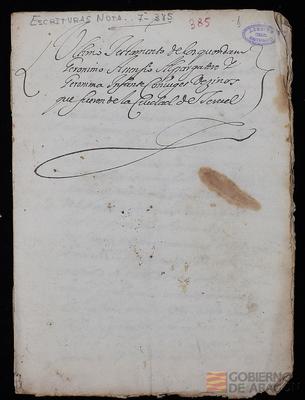 ESCRITURAS NOTA. 7-385
385
Ultimo Testamento de
Geronimo Assensio Y
Geronima Infante Conjuges Vezinos
que fueron de la Ciudad de Teruel
GOBIERNO
DE ARAGON